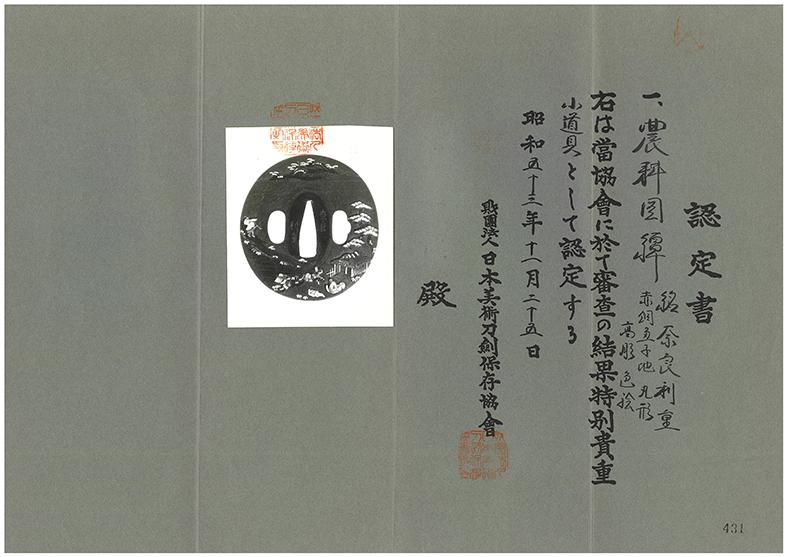 認定書
一、農耕図鐔 銘 奈良利重
赤銅魚子地 丸形
高彫色絵
右は當協會に於て審査の結果特別貴重
小道具として認定する
昭和五十三年十一月二十五日
財團法人日本美術刀劍保存協會
殿
431